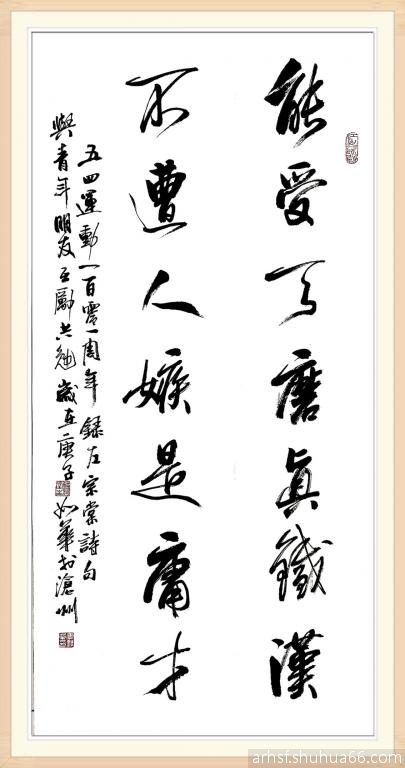 能受天磨真鐵漢
不遭人嫉是庸才
五四運動一百零一周年錄左宗棠詩句
與青年朋友互勵共勉歲在庚子如華於滄州
arhsf.shuhua66.com